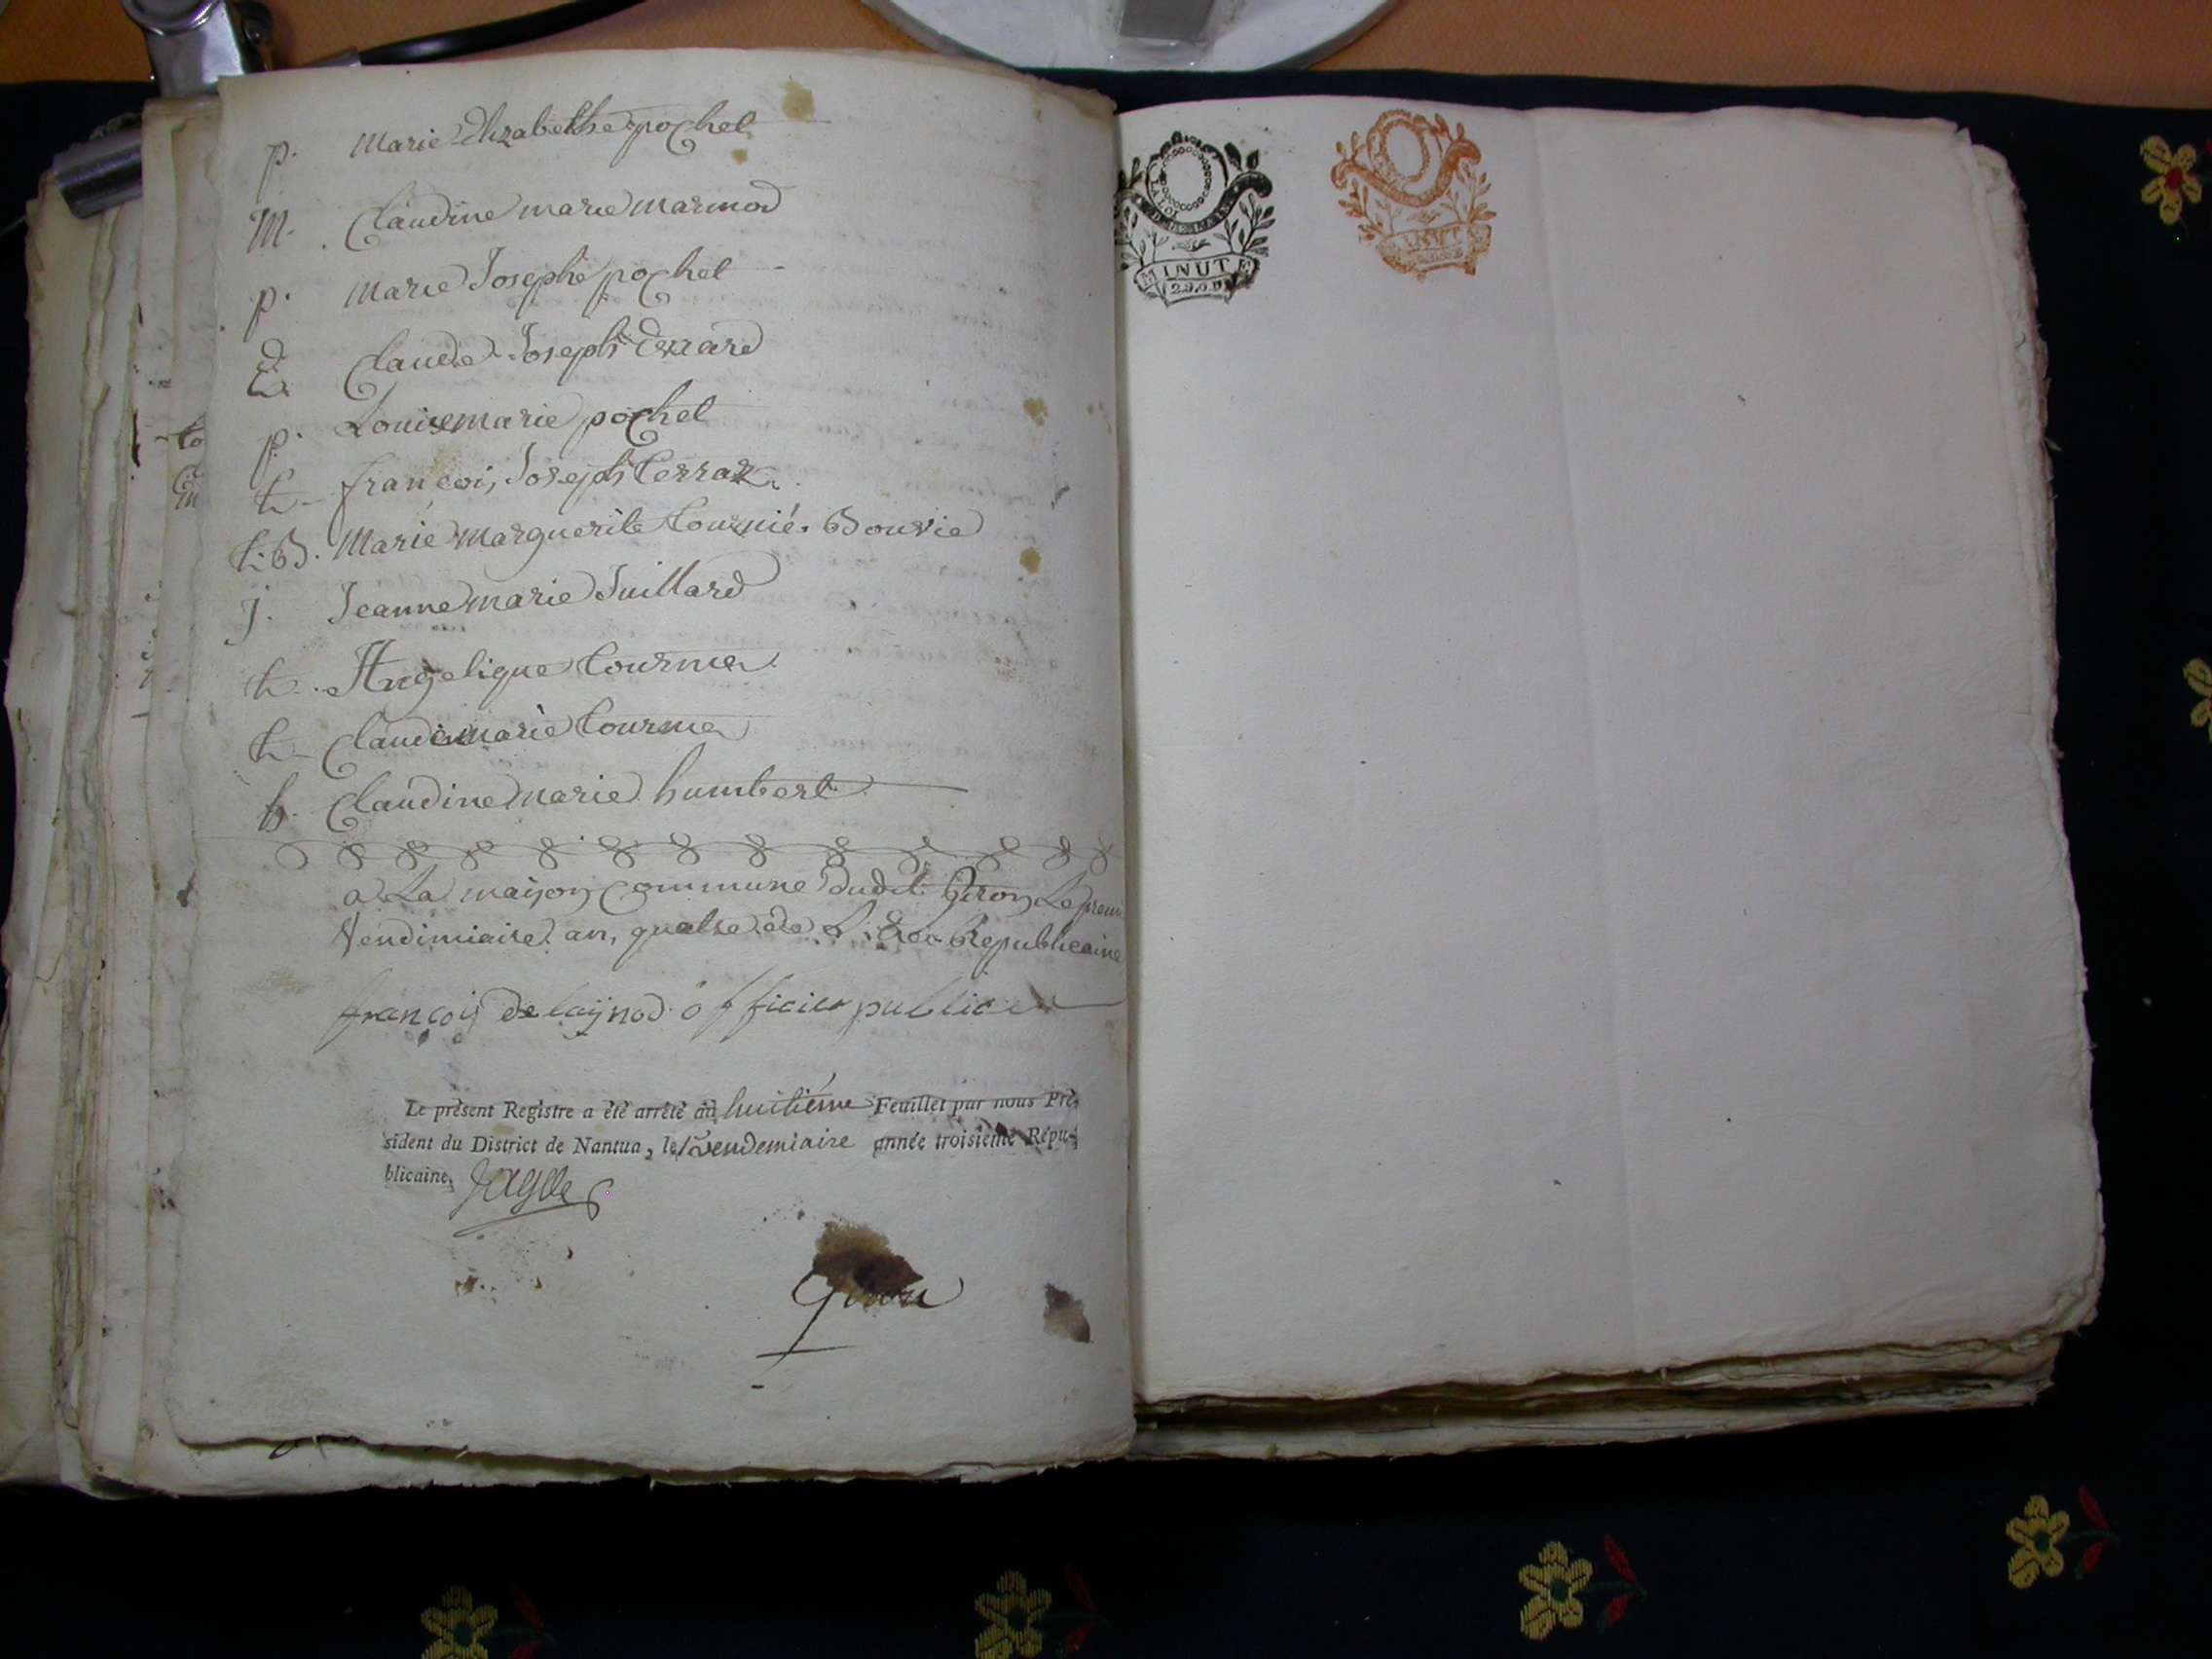 p. Marie Elizabethe pochet
M. Claudine marie marmod
p. Marie Josephe pochet
Claude Joseph
p. Louise marie pochet
t. françois Joseph
t. B. Marie Marguerite tournié. Bouvie
j. Jeanne marie Juillard
t. Angelique tournier
t. Claudimarie tournier
h. Claudine Marie humbert
a La maison Commune dudit Giron Le premi
Vendimiaire an, quatre de L. Ere Republicaine
françois delaÿnod officier public
Le présent Registre a été arrêté au huitiéme Feuillet par nous Pré-
sident du District de Nantua, le vendemiaire année troisieme Répu-
blicaine.
Giron
LA LOI
MINUTE
MINUTE